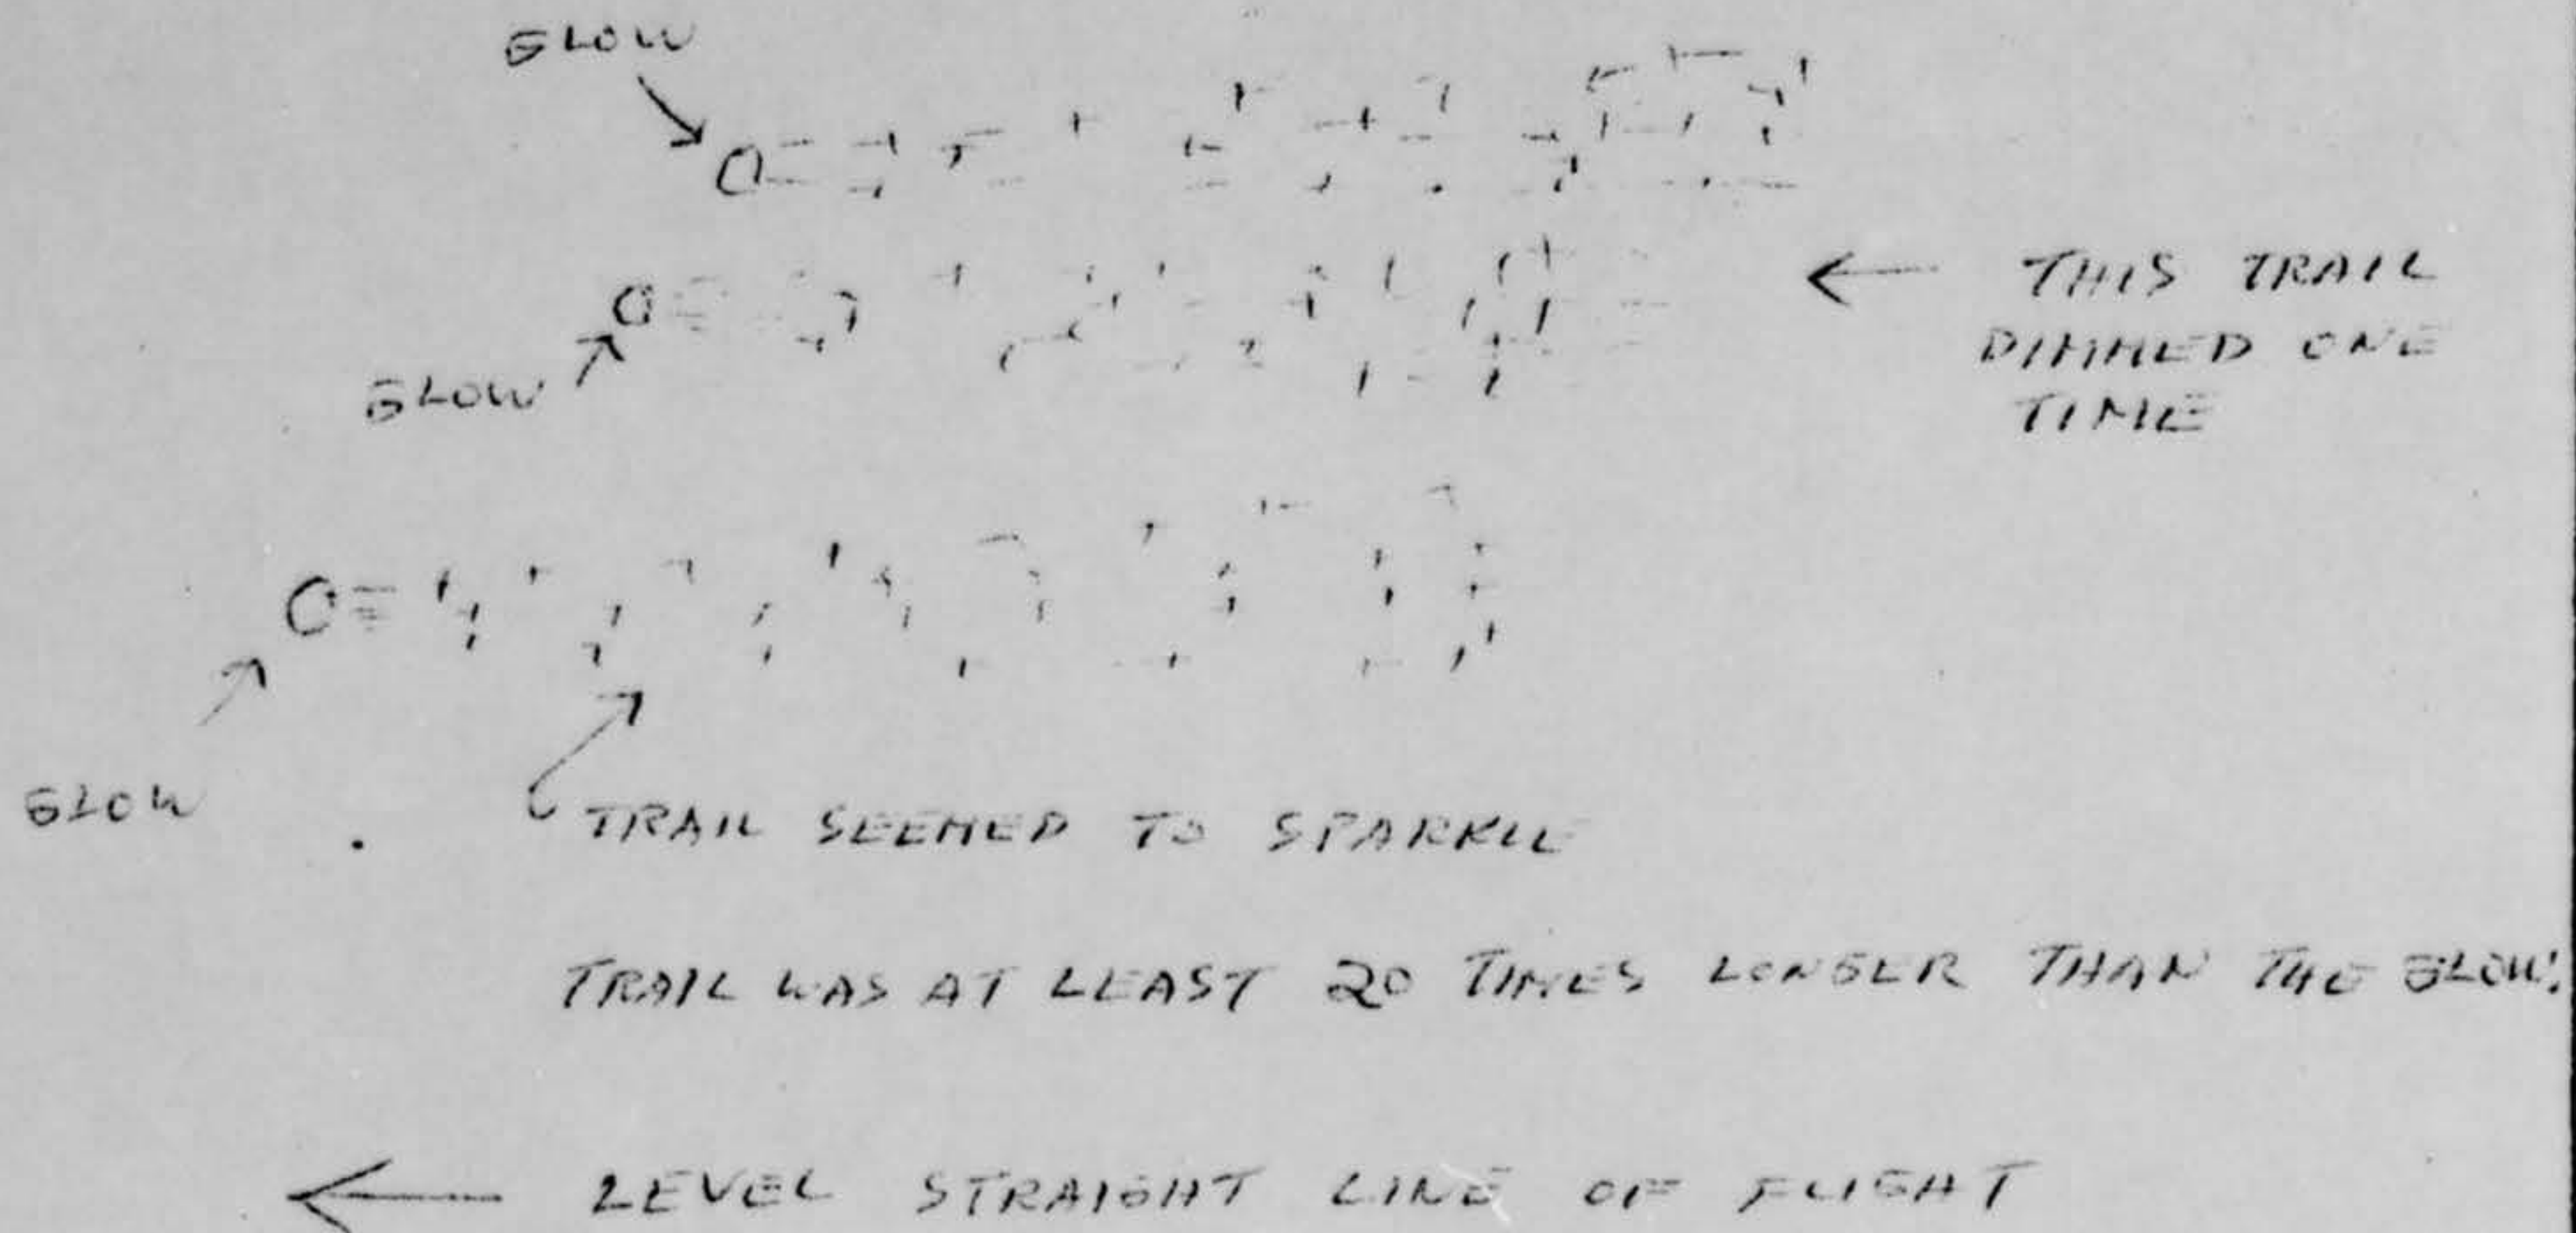 GLOW
← THIS TRAIL
DIMMED ONE
TIME
GLOW
GLOW
TRAIL SEEMED TO SPARKLE
TRAIL WAS AT LEAST 20 TIMES LONGER THAN THE GLOW.
← LEVEL STRAIGHT LINE OF FLIGHT